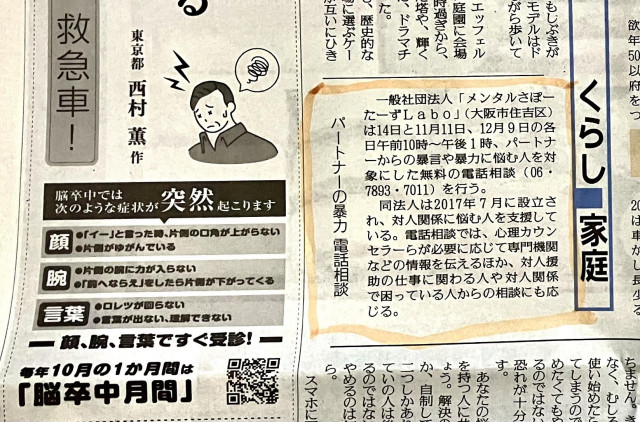 くらし 家庭
パートナーの暴力 電話相談
一般社団法人「メンタルさぽー
たーずLabo」(大阪市住吉区)
は14日と11月11日、12月9日の各
日午前10時〜午後1時、パートナ
ーからの暴言や暴力に悩む人を対
象にした無料の電話相談(06・
7893・7011)を行う。
同法人は2017年7月に設立さ
れ、対人関係に悩む人を支援して
いる。電話相談では、心理カウン
セラーらが必要に応じて専門機関
などの情報を伝えるほか、対人援
助の仕事に関わる人や対人関係
で困っている人からの相談にも応
じる。
救急車!
東京都 西村 薫 作
脳卒中では
次のような症状が突然起こります
顔
●「イー」と言った時、片側の口角が上がらない
●片側がゆがんでいる
腕
●片側の腕に力が入らない
●「前へならえ」をしたら片側が下がってくる
言葉
●ロレツが回らない
●言葉が出ない、理解できない
顔、腕、言葉ですぐ受診!
毎年10月の1か月間は
「脳卒中月間」
もしぶきが
モデルはド
がら歩いて
エッフェル
庭園に会場
時過ぎから、
塔や、輝く
、ドラマチ
た。
、歴史的な
場に選ぶケー
が互いにひき
あなたの悩
を持つ人にサ
ょう。解決の
か、自制して
二つしかあり
ていの人は後
るのではな
やめるのは
ら。
スマホに
ちません。き
なく、むしろ
使い始めたら
てしまうので
めたくてもや
るのではない
恐れが十分
す。